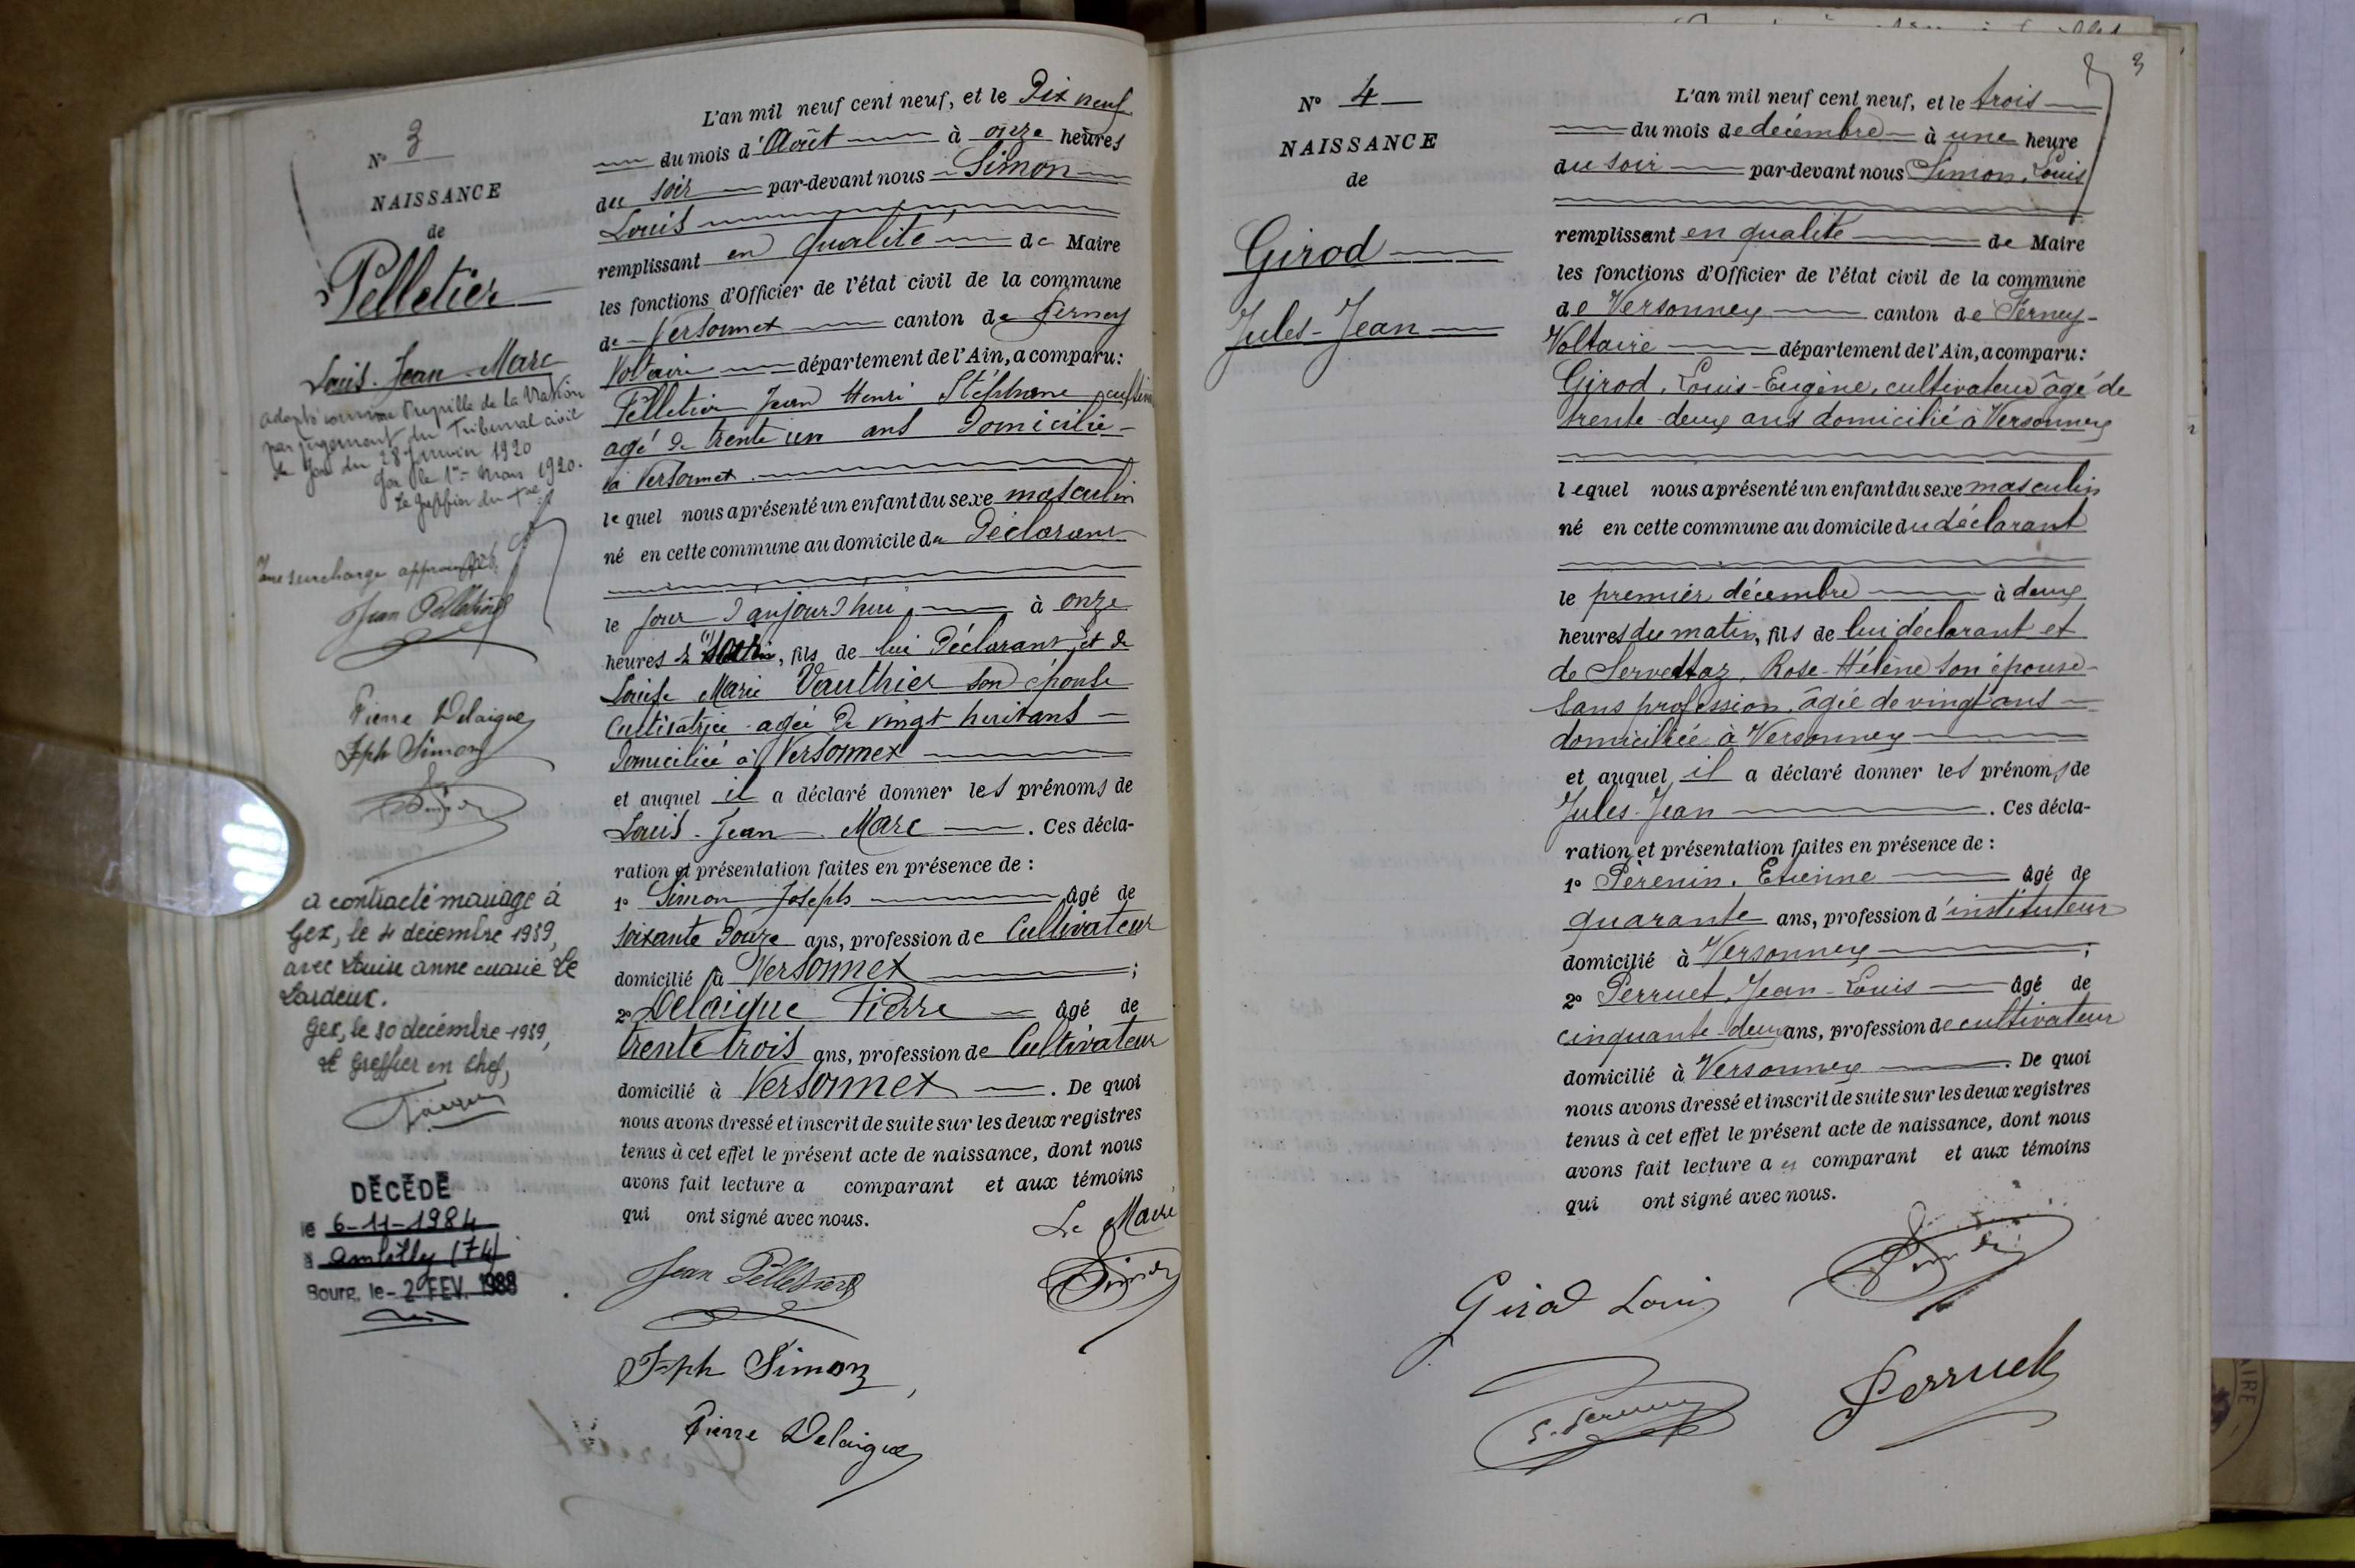 N° 3
NAISSANCE
de
Pelletier
Louis-Jean-Marc
adopté comme Pupille de la Nation
par jugement du Tribunal civil
de Gex du 28 Janvier 1920
Gex le 1er Mars 1920.
Le Greffier du
Une surcharge approuvée
Jean Pelletier
Pierre Delaigue
Jph Simon
a contracté mariage à
Gex, le 4 décembre 1939,
avec Louise anne marie Le
Lardeux.
Gex, le 30 décembre 1939,
Le Greffier en chef,
DÉCÉDÉ
le 6-11-1984
à Ambilly (74)
Bourg, le - 2 FEV. 1988
L'an mil neuf cent neuf, et le Dix neuf
du mois d'Août à onze heures
du soir par-devant nous Simon
Louis
remplissant en qualité de Maire
les fonctions d'Officier de l'état civil de la commune
de Versonnex canton de Ferney
Voltaire département de l'Ain, a comparu:
Pelletier Jean Henri Stéphane
agé de trente un ans Domicilié
à Versonnex
lequel nous a présenté un enfant du sexe masculin
né en cette commune au domicile du Déclarant
le jour d'aujourd'hui à onze
heures du (1) matin, fils de lui Déclarant et de
Louise Marie Vauthier son épouse
Cultivatrice agée de vingt huit ans
Domiciliée à Versonnex
et auquel il a déclaré donner les prénoms de
Louis-Jean-Marc. Ces décla-
ration et présentation faites en présence de :
1° Simon Joseph âgé de
soixante Douze ans, profession de Cultivateur
domicilié à Versonnex ;
2° Delaigue Pierre âgé de
trente trois ans, profession de Cultivateur
domicilié à Versonnex. De quoi
nous avons dressé et inscrit de suite sur les deux registres
tenus à cet effet le présent acte de naissance, dont nous
avons fait lecture a comparant et aux témoins
qui ont signé avec nous.
Le Maire
Jean Pelletier
Simon
Jph Simon
Pierre Delaigue
3
N° 4
NAISSANCE
de
Girod
Jules-Jean
L'an mil neuf cent neuf, et le trois
du mois de décembre à une heure
du soir par-devant nous Simon, Louis
remplissant en qualité de Maire
les fonctions d'Officier de l'état civil de la commune
de Versonnex canton de Ferney-
Voltaire département de l'Ain, a comparu:
Girod, Louis-Eugène, cultivateur âgé de
trente-deux ans domicilié à Versonnex
lequel nous a présenté un enfant du sexe masculin
né en cette commune au domicile du déclarant
le premier décembre à deux
heures du matin, fils de lui déclarant et
de Servettaz, Rose-Hélène son épouse
sans profession, âgée de vingt ans
domiciliée à Versonnex
et auquel il a déclaré donner les prénoms de
Jules-Jean. Ces décla-
ration et présentation faites en présence de :
1° Pérenin, Etienne âgé de
quarante ans, profession d'instituteur
domicilié à Versonnex ;
2° Perruet, Jean-Louis âgé de
cinquante-deux ans, profession de cultivateur
domicilié à Versonnex. De quoi
nous avons dressé et inscrit de suite sur les deux registres
tenus à cet effet le présent acte de naissance, dont nous
avons fait lecture au comparant et aux témoins
qui ont signé avec nous.
Girod Louis
Perruet